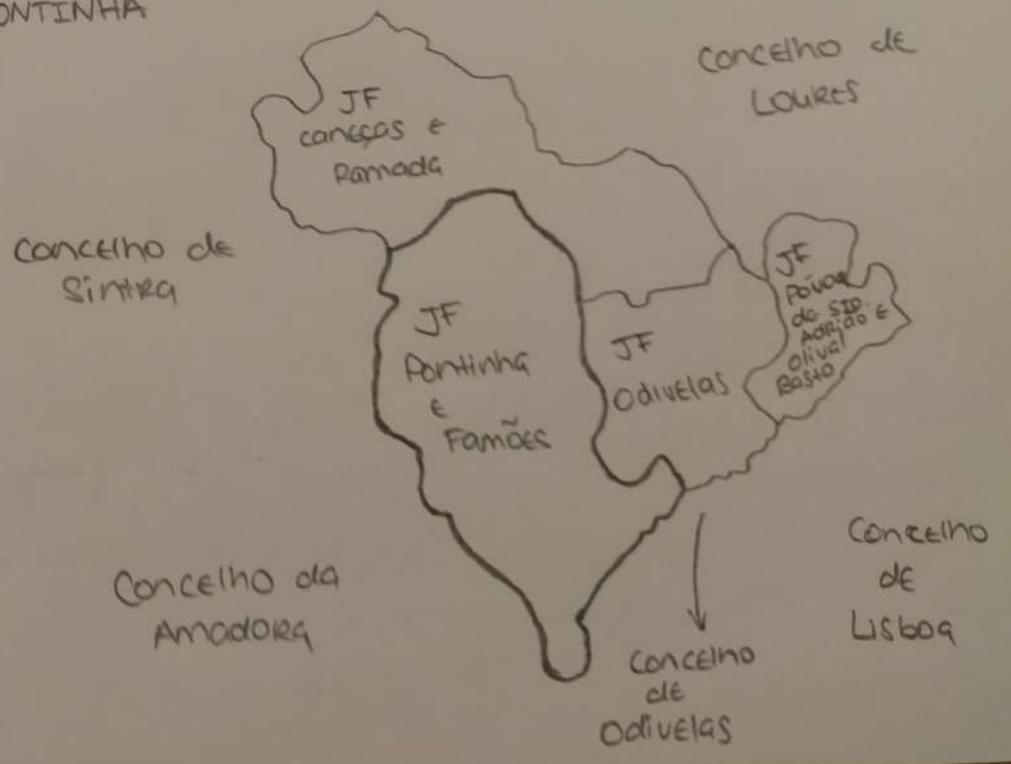 ONTINHA
Concelho de
Loures
JF
caneças e
Ramada
Concelho de
Sintra
JF
Pontinha
e
Famões
JF
Odivelas
JF
Póvoa
de STO.
Adrião e
Olival
Basto
Concelho da
Amadora
Concelho
de
Lisboa
Concelho
de
Odivelas